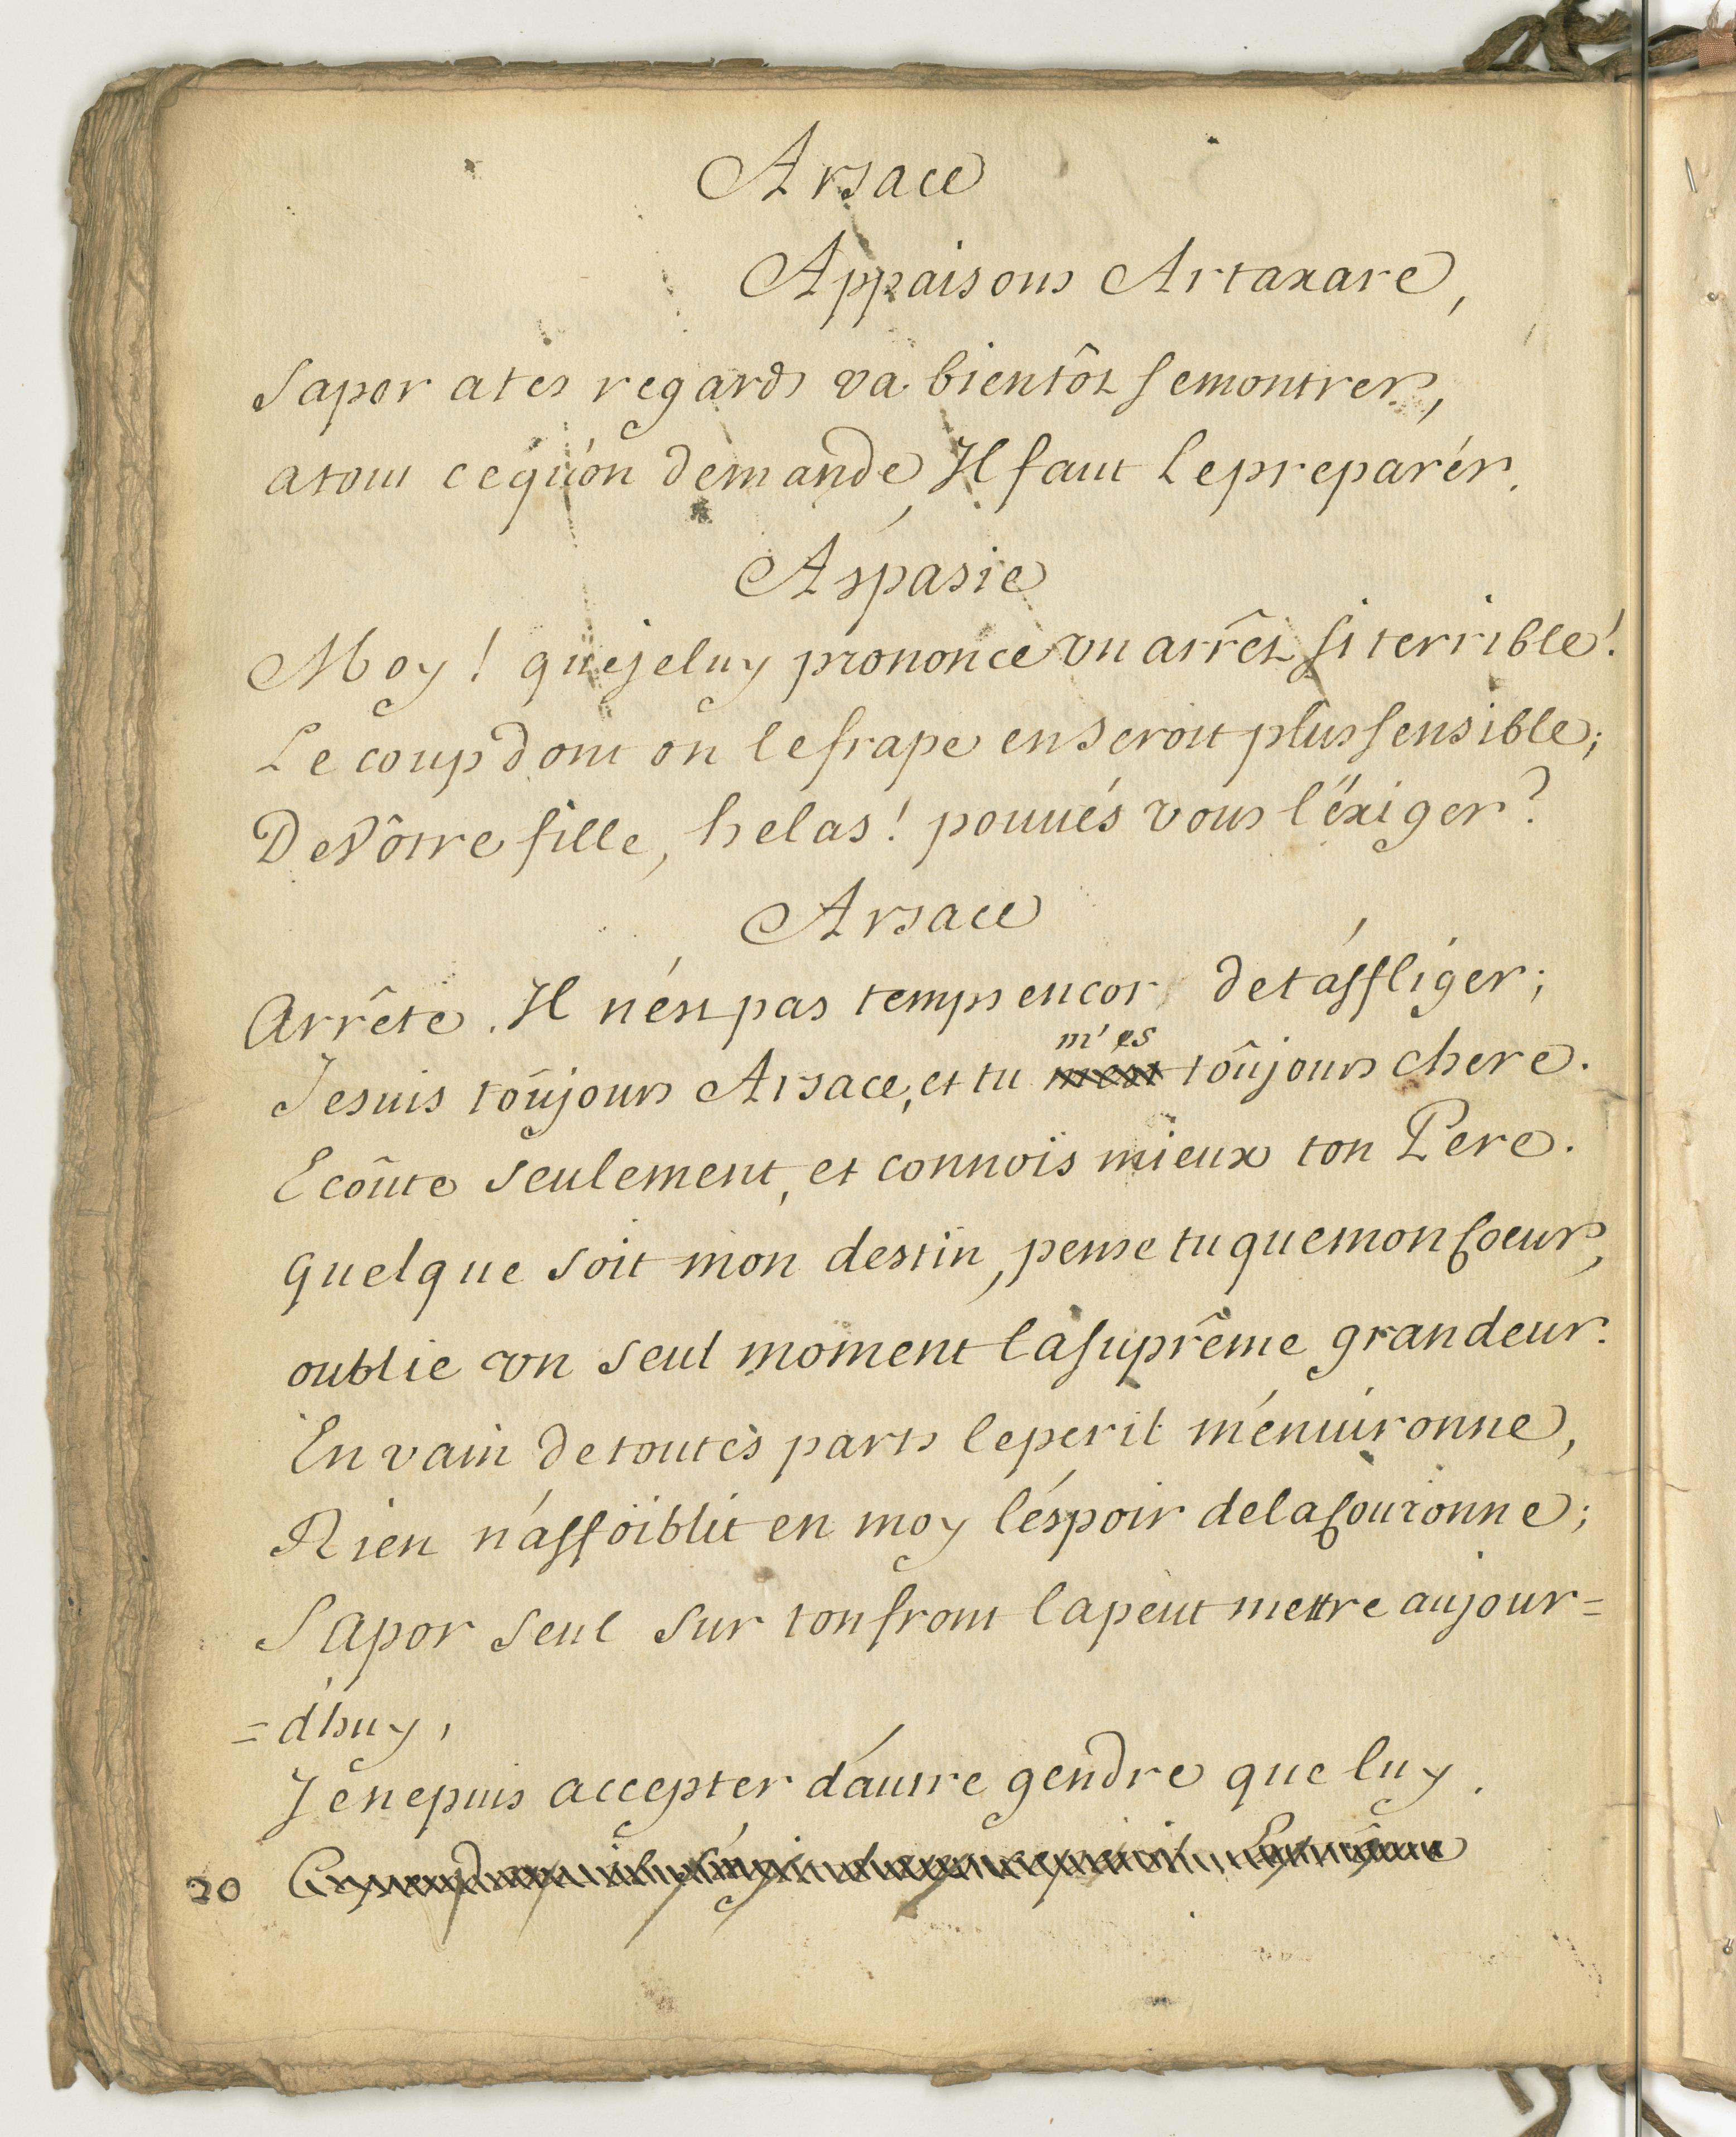 Arsace
Appaisons Artaxare,
Sapor a tes regards va bientôt se montrer,
a tout ce qu'on demande, Il faut le preparér.
Aspasie
Moy! que je luy prononce vn arrêt si terrible!
Le coup dont on le frape en seroit plus sensible;
De Vôtre fille, helas! pouués vous l'éxiger?
Arsace
Arrête. Il n'est pas temps encor de t'affliger;
m'es
Je suis toûjours Arsace, et tu m'est toûjours chere.
Ecoûte seulement, et connois mieux ton Pere.
quelque soit mon destin, pense tu que mon Coeur,
oublie vn seul moment la suprême grandeur.
En vain de toutes parts le peril m'énuironne,
Rien n'affoiblit en moy l'éspoir de la Couronne;
Sapor seul sur ton front la peut mettre aujour=
=d'huy,
Je ne puis accepter d'autre gendre que luy.
20